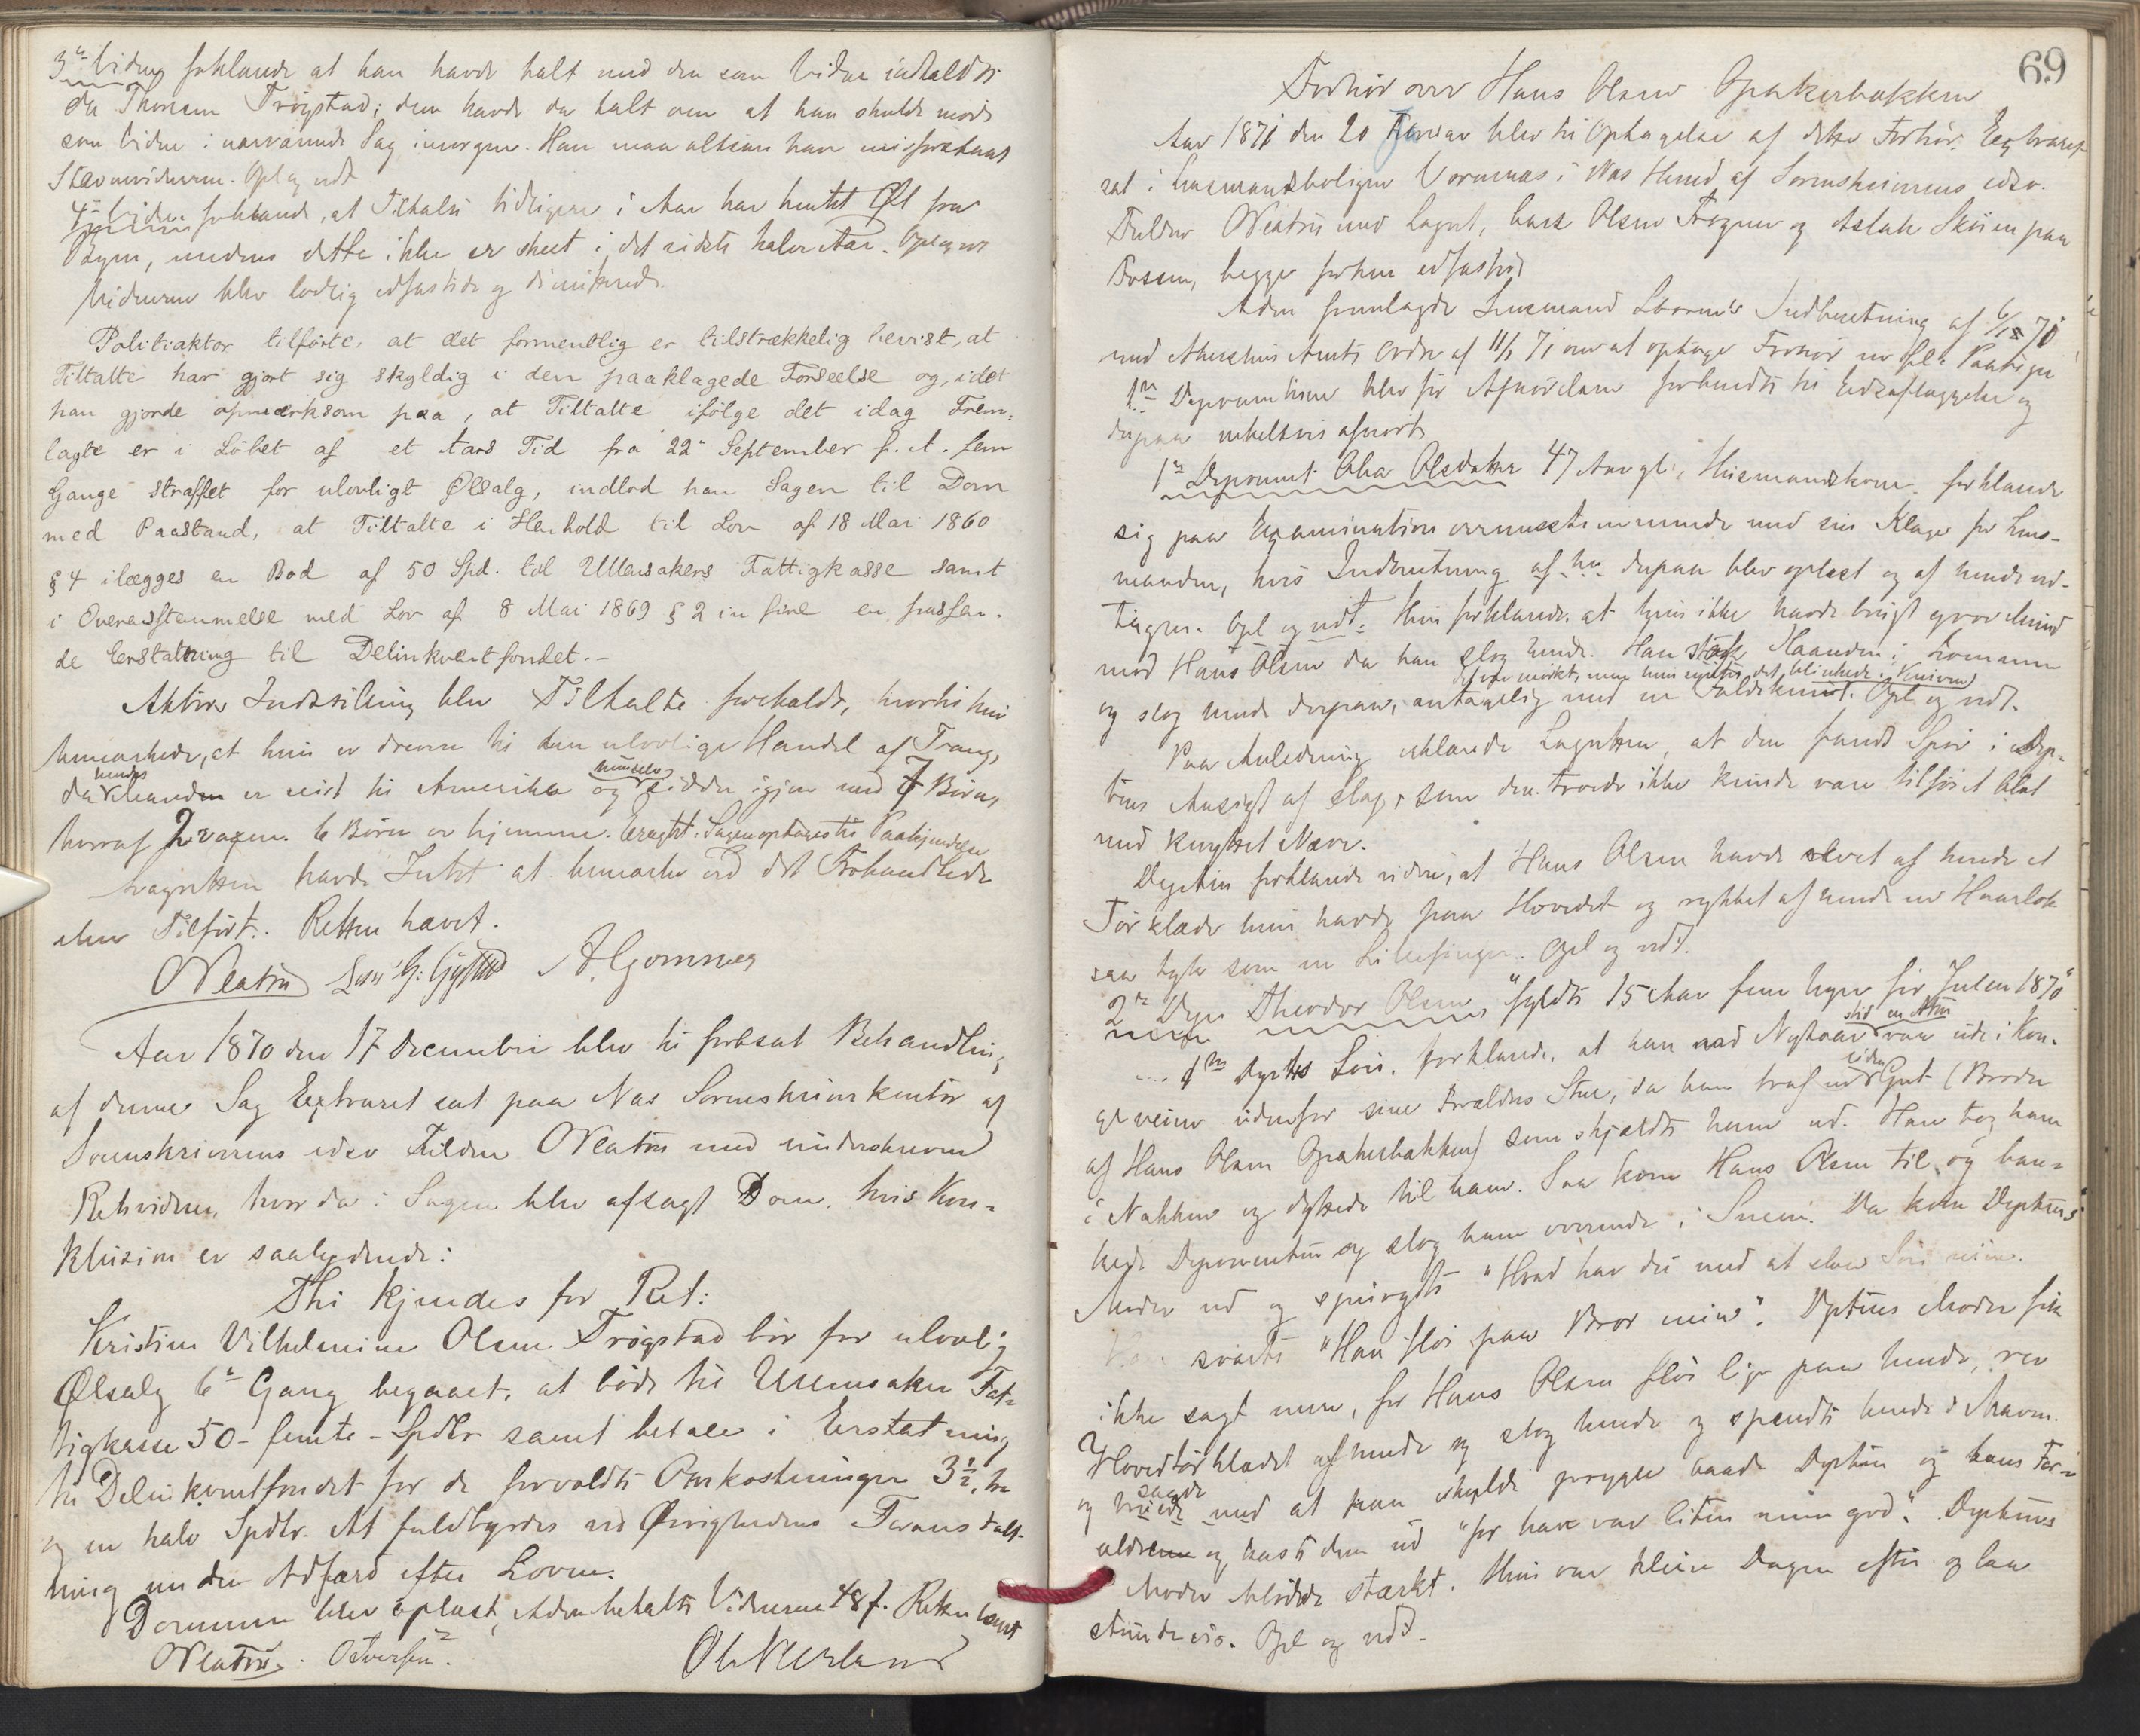 3die Vidne forklarede at han havde talt med den som Vidne indkaldte
Ole Thoresen Trøgstad; den havde da talt om at han skulde møde
som Vidne i nærværende Sag imorgen. Han maa altsaa have misforstaaet
Stævnevidnerne. Opl og vedt
4de Vidne forklarede, at Tiltalte tidligere i Aar har hentet Øl fra
Byen, medens dette ikke er skeet i det sidste halve Aar. Opl og vedt
Vidnerne blev lovlig edfæstede og dimitterede.
Politiaktor tilførte, at det formentlig er tilstrækkelig bevist, at
Tiltalte har gjort sig skyldig i den paaklagede Forseelse og, idet
han gjorde opmærksom paa, at Tiltalte ifølge det idag Frem-
lagte er i Løbet af et Aars Tid fra 22de September f. A. fem
Gange straffet for ulovligt Ølsalg, indlod han Sagen til Dom
med Paastand, at Tiltalte i Henhold til Lov af 18 Mai 1860
§ 4 ilægges en Bod af 50 Spd. til Ullensakers Fattigkasse samt
i Overensstemmelse med Lov af 8 Mai 1869 § 2 in fine en passen-
de Erstatning til Delinkventfondet.-
Aktors Indstilling blev Tiltalte foreholdt, hvortil hun
bemærkede, at hun er dreven til den ulovlige Handel af Trang,
da hendes Manden er reist til Amerika og hun selv sidder igjen med 7 Børn,
hvoraf 2 voxen. 6 Børn er hjemme. Eragtet: Sagen optages til Paakjendelse
Lagretten havde Intet at bemærke ved det Forhandlede
eller Tilførte. Retten hævet.
O Neatün A. Gomnæs
Aar 1870 den 17 December blev til fortsat Behandling
af denne Sag Extraret sat paa Næs Sorenskriverkontor af
Sorenskriverens edsv Fuldm O Neatün med underskrevne
Retsvidner, hvor da i Sagen blev afsagt Dom, hvis Kon-
klusion er saalydende:
Thi kjendes for Ret:
Kristine Vilhelmine Olsen Trøgstad bør for ulovlig
Ølsalg 6te Gang begaaet, at bøde til Ullensaker Fat-
tigkasse 50 - femti - Spdlr samt betale i Erstatning
til Delinkventfondet for de forvoldte Omkostninger 3½, tre
og en halv Spdlr. At fuldbyrdes ved Øvrighedens Foranstalt-
ning under Adfærd efter Loven.
Dommen blev oplæst, Aden betalte Vidnerne 48 ſ. Retten hævet
O Neatün.

69
Forhør over Hans Olsen Opakerbakken
Aar 1871 den 20 Januar blev til Optagelse af dette Forhør Extraret
sat i Lensmandsboligen Vormnæs i Næs Hered af Sorenskriverens edsv.
Fuldm O Neatün med Lagret, Lars Olsen Frøgner og Aslak Skøien paa
Fossum, begge forhen edfæstede
Aden fremlagde Lensmand Indberetning af 6/12 70
med Akershus Amts Ordre af 11/1 71 om at optage Forhør
1ste Deponentinde blev før Afhørelsen forberedt til Edsaflæggelse og
derpaa enkeltvis afhørt
1ste Deponent Olea Olsdatter 47 Aar gl., Husmandskone, forklarede
sig paa Examination overensstemmende med sin Klage for Lens-
manden, hvis Indberetning derpaa blev oplæst og af hende ved-
taget. Opl og vedt. Hun forklarede, at hun ikke havde brugt
mod Hans Olsen da han slog hende. Han stak Haanden i Lommen
Det var mørkt, men hun syntes det blinkede i Kniven
og slog hende derpaa, antagelig med en Foldekniv. Opl og vedt.
Paa Anledning erklærede Lagretten, at den fandt Spor i Dep-
tens Ansigt af Slag, som den troede ikke kunde være tilføiet blot
med knyttet Næve.
Deptin forklarede videre, at Hans Olsen havde revet af hende et
Tørklæde hun havde paa Hovedet og rykket af hende en Haarlok
saa tyk som en Lillefinger. Opl og vedt.
2den Depo Theodor Olsen, "fyldte 15 Aar fem Uger før Julen 1870"
1ste Deptes Søn, forklarede, at han ved Nytaar var ude i Kon-
geveien udenfor sine Forældres Stue, da han traf en liden Gut (Broder
af Hans Olsen Opakerbakken) som skjældte ham ud. Han tog ham
i Nakken og dyttede til ham. Saa kom Hans Olsen til og ban-
kede Deponenten og slog ham overende i Sneen. Da kom Deptens
Moder ud og spurgte "Hvad har du med at slaa Søn min.
svarte "Han fløi paa Bror min". Deptens Moder fik
ikke sagt mere, for Hans Olsen fløi lige paa hende, rev
Hovedtørklædet af hende og slog hende og spændte hende i Maven.
og truede med sagde at han skulde prygle baade Deptn og hans For-
ældrene og kaste dem ud "for han var liten nim god". Deptens
Moder blødde stærkt. Hun var klein Dagen efter og laa
stundevis. Opl og vedt.